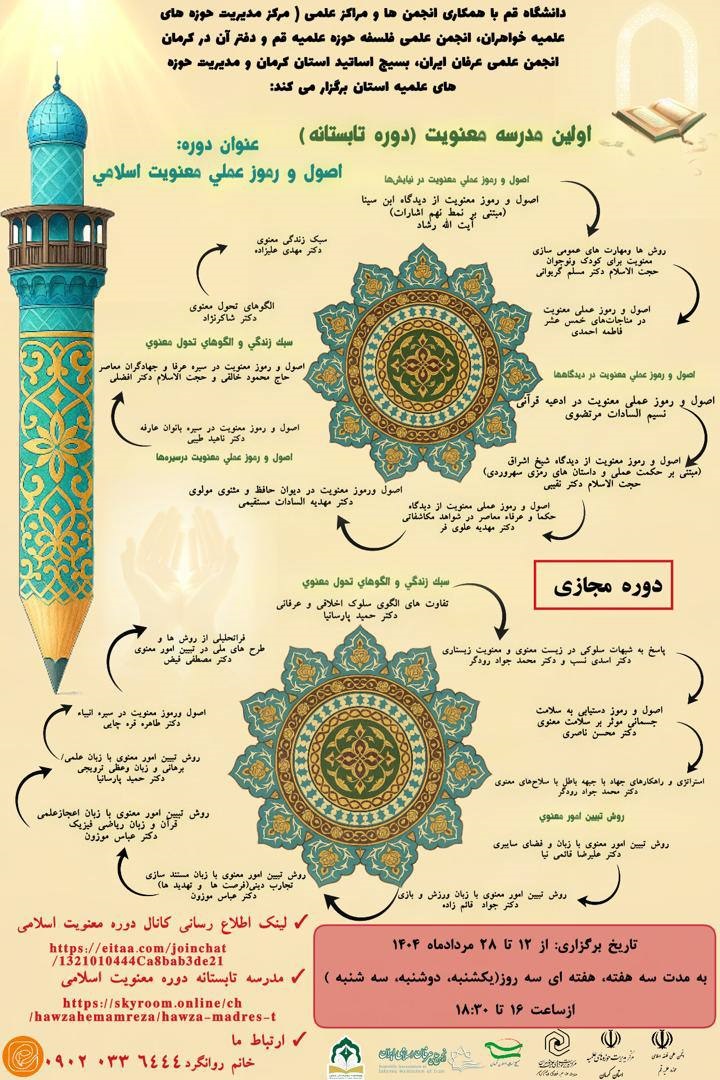 دانشگاه قم با همکاری انجمن ها و مراکز علمی ( مرکز مدیریت حوزه های
علمیه خواهران، انجمن علمی فلسفه حوزه علمیه قم و دفتر آن در کرمان
انجمن علمی عرفان ایران، بسیج اساتید استان کرمان و مدیریت حوزه
های علمیه استان برگزار می کند:
اولین مدرسه معنویت (دوره تابستانه )
عنوان دوره:
اصول و رموز عملي معنويت اسلامي
اصول و رموز عملي معنويت در نيايش‌ها
اصول و رموز معنویت از دیدگاه ابن سینا
(مبتنی بر نمط نهم اشارات)
آیت الله رشاد
روش ها ومهارت های عمومی سازی
معنویت برای کودک ونوجوان
حجت الاسلام دکتر مسلم گریوانی
اصول و رموز عملی معنویت
در مناجات‌های خمس عشر
فاطمه احمدی
اصول و رموز عملي معنويت در ديدگاهها
اصول و رموز عملی معنویت در ادعیه قرآنی
نسیم السادات مرتضوی
اصول و رموز معنویت از دیدگاه شیخ اشراق
(مبتنی بر حکمت عملی و داستان های رمزی سهروردی)
حجت الاسلام دکتر نقیبی
اصول و رموز عملی معنویت از دیدگاه
حکما و عرفاء معاصر در شواهد مکاشفاتی
دکتر مهدیه علوی فر
اصول ورموز معنویت در دیوان حافظ و مثنوی مولوی
دکتر مهدیه السادات مستقیمی
اصول و رموز عملي معنويت درسيره‌ها
اصول و رموز معنویت در سیره بانوان عارفه
دکتر ناهید طیبی
اصول و رموز معنویت در سیره عرفا و جهادگران معاصر
حاج محمود خالقی و حجت الاسلام دکتر افضلی
سبك زندگي و الگوهاي تحول معنوي
الگوهای تحول معنوی
دکتر شاکرنژاد
سبک زندگی معنوی
دکتر مهدی علیزاده
دوره مجازی
سبك زندگي و الگوهاي تحول معنوي
تفاوت های الگوی سلوک اخلاقی و عرفانی
دکتر حمید پارسانیا
پاسخ به شبهات سلوکی در زیست معنوی و معنویت زیستاری
دکتر اسدی نسب و دکتر محمد جواد رودگر
اصول و رموز دستیابی به سلامت
جسمانی موثر بر سلامت معنوی
دکتر محسن ناصری
استراتژی و راهکارهای جهاد با جبهه باطل با سلاح‌های معنوی
دکتر محمد جواد رودگر
روش تبيين امور معنوي
روش تبیین امور معنوی با زبان و فضای سایبری
دکتر علیرضا قائمی نیا
روش تبیین امور معنوی با زبان ورزش و بازی
دکتر جواد قائم زاده
روش تبیین امور معنوی با زبان مستند سازی
تجارب دینی(فرصت ها و تهدید ها)
دکتر عباس موزون
روش تبیین امور معنوی با زبان اعجازعلمی
قرآن و زبان ریاضی فیزیک
دکتر عباس موزون
روش تبیین امور معنوی با زبان علمی/
برهانی و زبان وعظی ترویجی
دکتر حمید پارسانیا
اصول ورموز معنویت در سیره انبیاء
دکتر طاهره قره چایی
فراتحلیلی از روش ها و
طرح های ملی در تبیین امور معنوی
دکتر مصطفی فیض
تاریخ برگزاری: از ۱۲ تا ۲۸ مردادماه ۱۴۰۴
به مدت سه هفته، هفته ای سه روز(یکشنبه، دوشنبه، سه شنبه )
ازساعت ۱۶ تا ۱۸:۳۰
✓ لینک اطلاع رسانی کانال دوره معنویت اسلامی
https://eitaa.com/joinchat
/1321010444Ca8bab3de21
✓ مدرسه تابستانه دوره معنویت اسلامی
https://skyroom.online/ch
/hawzahemamreza/hawza-madres-t
✓ ارتباط ما
خانم روانگرد۰۹۰۲ ۰۳۳ ۶۴۴۴